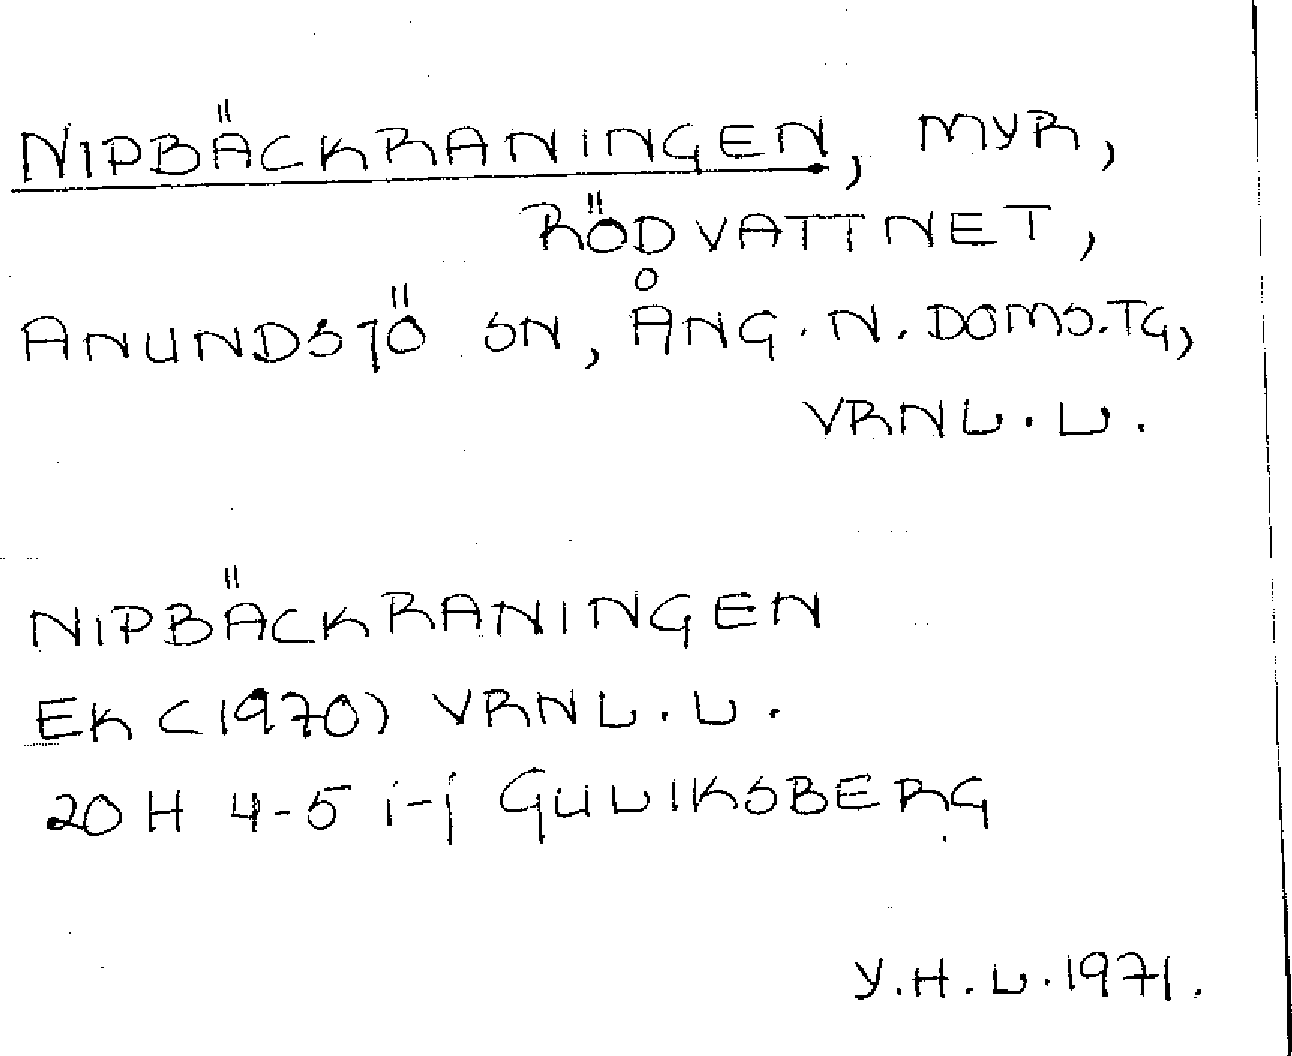 NIPBÄCKRANINGEN, MYR,
RÖDVATTNET,
ANUNDSJÖ SN, ÅNG. N. DOMS.TG,
VRNL.L.
NIPBÄCKRANINGEN
EK (1970) VRNL.L.
20 H 4-5 i-j GULIKSBERG
Y.H.L.1971.